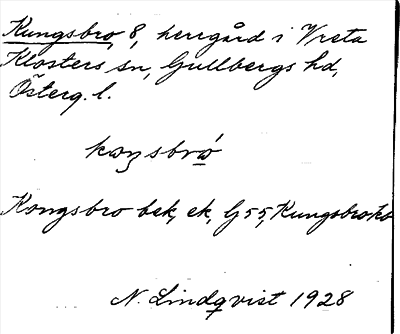 Kungsbro, 8, herrgård i Vreta
Klosters sn, Gullbergs hd,
Österg. l.
Kongsbro bek, ek, G 55, Kungsbro
N. Lindqvist 1928